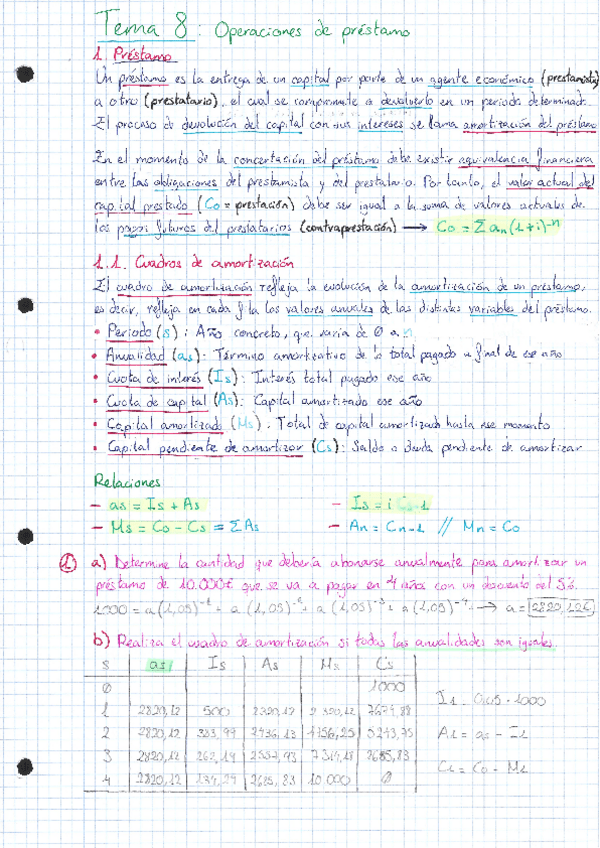 Tema 8: Operaciones de préstamo
1. Préstamo
Un préstamo es la entrega de un capital por parte de un agente económico (prestamista)
a otro (prestatario), el cual se compromete a devolverlo en un periodo determinado.
El proceso de devolución del capital con sus intereses se llama amortización del préstamo
En el momento de la concertación del préstamo debe existir equivalencia financiera
entre las obligaciones del prestamista y del prestatario. Por tanto, el valor actual del
capital prestado (Co = prestación) debe ser igual a la suma de valores actuales de
los pagos futuros del prestatarios (contraprestación) → Co = Σ an (1+i)-n
1.1. Cuadros de amortización
El cuadro de amortización refleja la evolución de la amortización de un préstamo,
es decir, refleja en cada fila los valores anuales de las distintas variables del préstamo.
• Periodo (s): Año concreto, que varía de 0 a n
• Anualidad (as): Término amortizativo de lo total pagado a final de ese año
• Cuota de interés (Is): Interés total pagado ese año
• Cuota de capital (As): Capital amortizado ese año
• Capital amortizado (Ms): Total de capital amortizado hasta ese momento
• Capital pendiente de amortizar (Cs): Saldo o deuda pendiente de amortizar
Relaciones
- as = Is + As - Is = i Cs-1
- Ms = Co - Cs = ΣAs - An = Cn-1 // Mn = Co
1) a) Determine la cantidad que debería abonarse anualmente para amortizar un
préstamo de 10.000€ que se va a pagar en 4 años con un descuento del 5%.
1000 = a (1,05)-1 + a (1,05)-2 + a (1,05)-3 + a (1,05)-4 → a = 2820,12€
b) Realiza el cuadro de amortización si todas las anualidades son iguales.
s as Is As Ms Cs
0 1000
1 2820,12 500 2320,12 2320,12 7679,88 I1 = 0,05 · 1000
2 2820,12 383,99 2436,13 4756,25 5243,75 A1 = as - I1
3 2820,12 262,19 2557,93 7314,18 2685,83 C1 = Co - M1
4 2820,12 134,29 2685,83 10 000 0